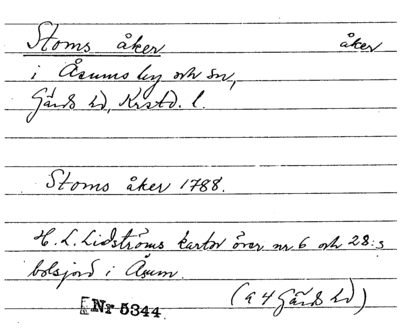 Stoms åker åker
i Åsums by och sn,
Gärds hd, Krstd. l.
Stoms åker 1788.
H. L. Lidströms kartor över nr. 6 och 28:s
bolsjord i Åsum.
(a 4 Gärds hd)
Nr 5344